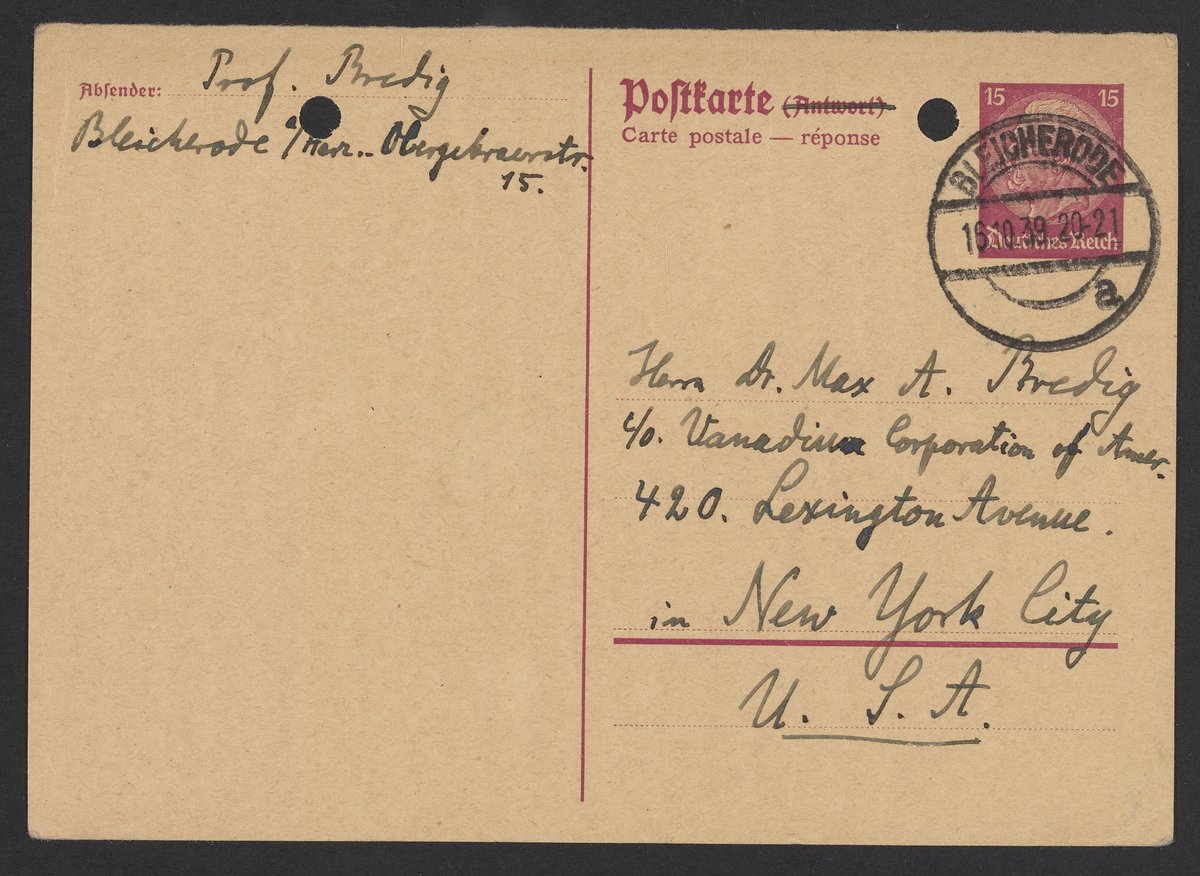 Absender: Prof. Bredig
Bleicherode a/Harz. Obergebraerstr.
15.
Postkarte (Antwort)
Carte postale — réponse
15 15
Deutsches Reich
BLEICHERODE
16.10.39. 20-21
a
Herrn Dr. Max A. Bredig
c/o. Vanadium Corporation of Amer.
420. Lexington Avenue.
in New York City
U. S. A.